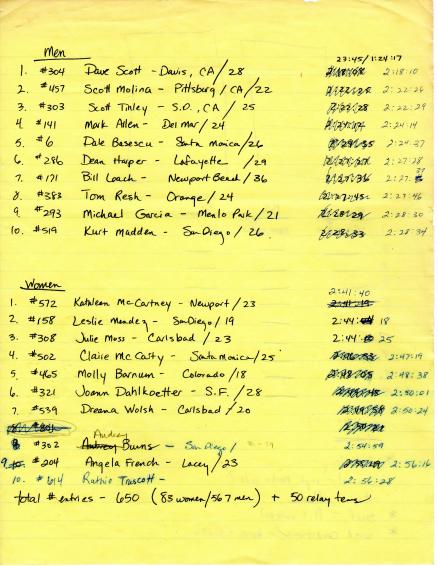 Men
23:45/1:24:17
1. #304 Dave Scott - Davis, CA / 28 2:18:10
2. #457 Scott Molina - Pittsburg, CA / 22 2:22:26
3. #303 Scott Tinley - S.D., CA / 25 2:22:29
4. #141 Mark Allen - Del Mar / 24 2:24:14
5. #6 Dale Basescu - Santa Monica / 26 2:24:37
6. #286 Dean Harper - Lafayette / 29 2:27:28
7. #171 Bill Leach - Newport Beach / 36 2:27:
8. #383 Tom Resh - Orange / 24 2:27:46
9. #293 Michael Garcia - Menlo Park / 21 2:28:30
10. #519 Kurt Madden - San Diego / 26 2:28:34
Women
2:41:40
1. #572 Kathleen McCartney - Newport / 23
2. #158 Leslie Mendez - San Diego / 19 2:44: 18
3. #308 Julie Moss - Carlsbad / 23 2:44: 25
4. #502 Claire McCarty - Santa Monica / 25 2:47:19
5. #465 Molly Barnum - Colorado / 18 2:48:38
6. #321 Joann Dahlkoetter - S.F. / 28 2:50:01
7. #539 Dreana Walsh - Carlsbad / 20 2:50:24
Audrey
8 #302 Burns - San Diego / 2:54:59
9. #204 Angela French - Lacey / 23 2:56:16
10. #614 Ruthie Truscott - 2:56:28
Total # entries - 650 (83 women/567 men) + 50 relay teams